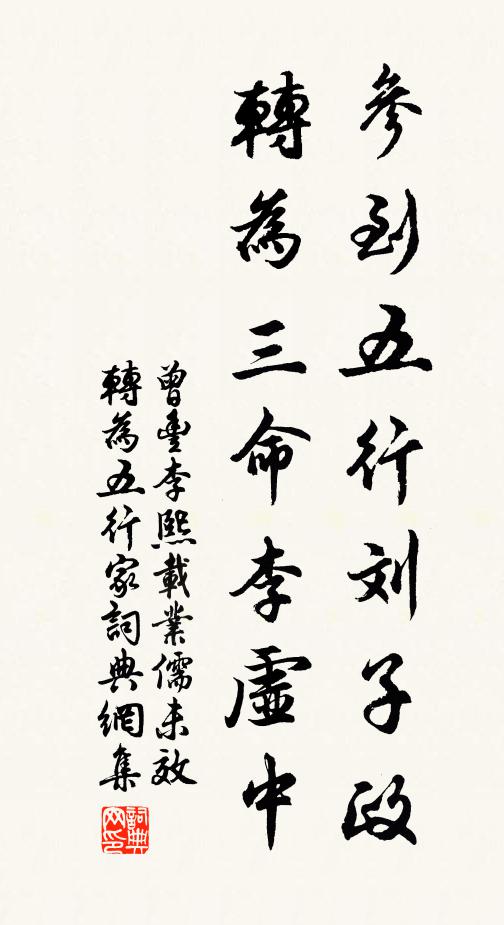 參到五行刘子政
轉為三命李虛中
曾豐李熙載業儒未效
轉為五行家詞典網集
詞典网印